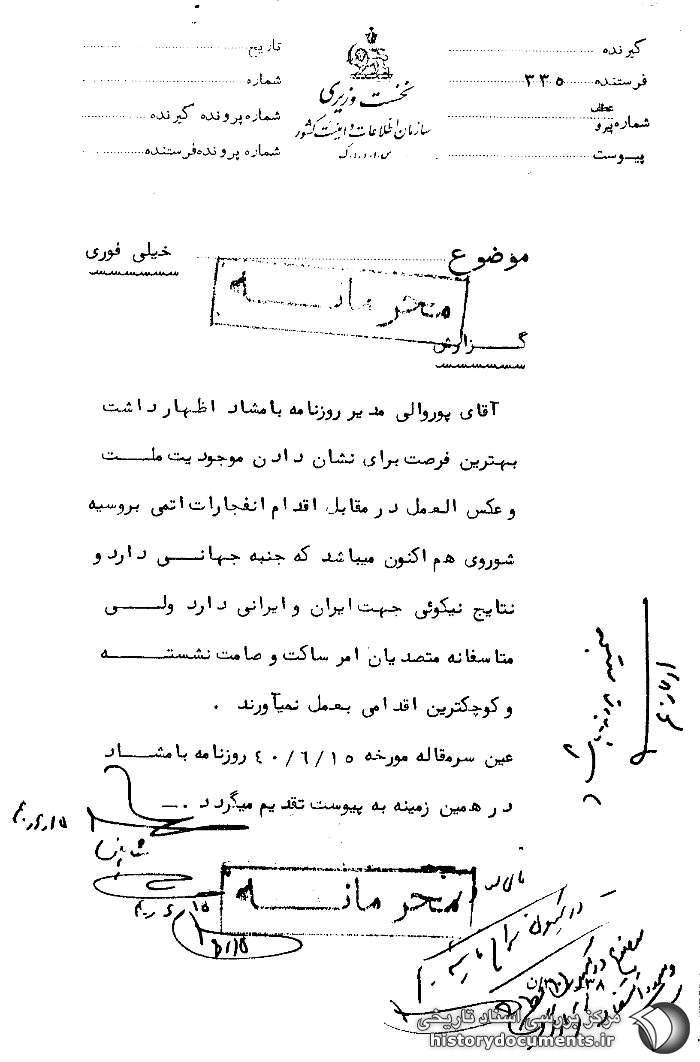 گیرنده
فرستنده ۳۳۵
عطف
شماره پیرو
پیوست
نخست وزیری
سازمان اطلاعات و امنیت کشور
س.ا.و.ا.ک
تاریخ
شماره
شماره پرونده گیرنده
شماره پرونده فرستنده
موضوع
خیلی فوری
محرمانه
گزارش
آقای پوروالی مدیر روزنامه بامشاد اظهار داشت
بهترین فرصت برای نشان دادن موجودیت ملت
و عکس العمل در مقابل اقدام انفجارات اتمی بروسیه
شوروی هم اکنون میباشد که جنبه جهانی دارد و
نتایج نیکوئی جهت ایران و ایرانی دارد ولی
متاسفانه متصدیان امر ساکت و صامت نشسته
و کوچکترین اقدامی بعمل نمیآورند .
عین سرمقاله مورخه ۴۰/۶/۱۵ روزنامه بامشاد
در همین زمینه به پیوست تقدیم میگردد .
محرمانه
مرکز بررسی اسناد تاریخی
historydocuments.ir